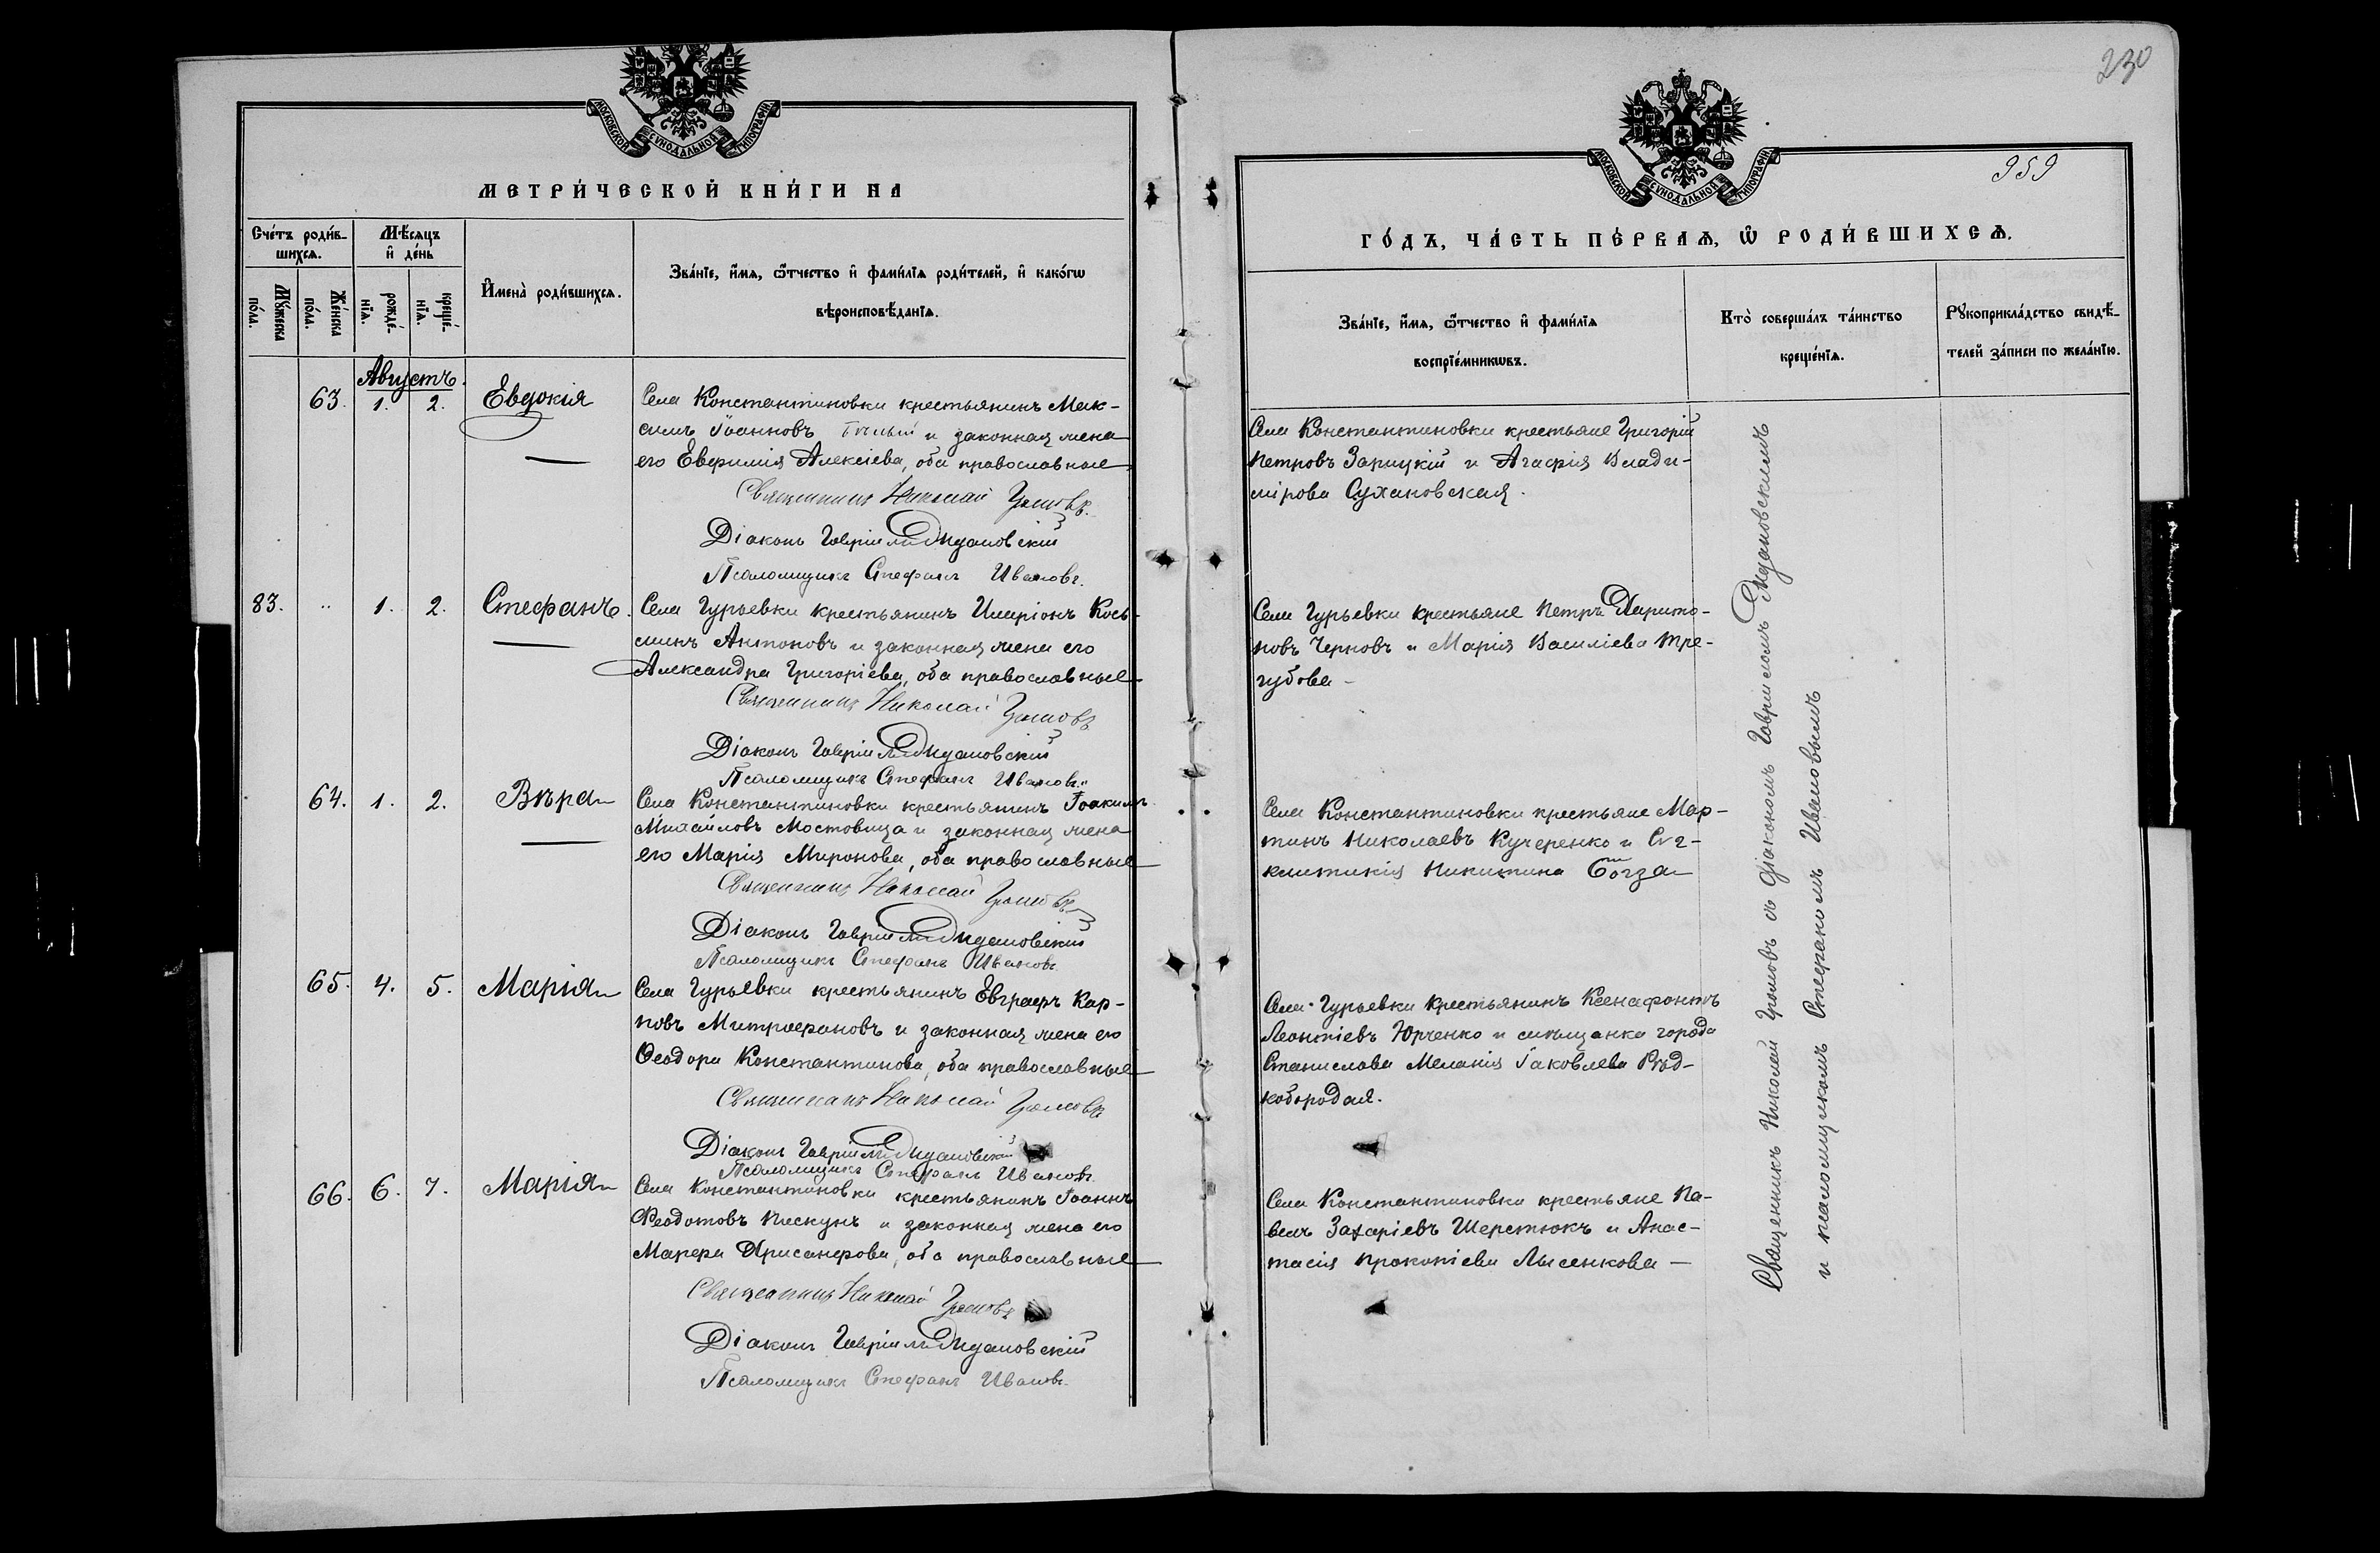 МОСКОВСКОЙ СѴНОДАЛЬНОЙ ТИПОГРАФІИ
МЕТРИ́ЧЕСКОЙ КНИ́ГИ НА
Сче́тъ роди́в-
шихсѧ.
Мꙋ́жеска
по́ла.
Же́нска
по́ла.
Мѣ́сѧцъ
и҆ де́нь
рожде́-
нїѧ.
креще́-
нїѧ.
И҆мена̀ роди́вшихсѧ.
Зва́нїе, и҆́мѧ, ѻ҆́тчество и҆ фами́лїѧ роди́телей, и҆ како́гѡ
вѣроисповѣ́данїѧ.
Августъ.
63. 1. 2. Евдокія
Села Константиновки крестьянинъ Мак-
симъ Іоанновъ Бѣлый и законная жена
его Евфимія Алексіева, оба православные
Священникъ Николай Громовъ.
Діаконъ Гавріилъ Ждановскій
Псаломщикъ Стефанъ Ивановъ.
83. " 1. 2. Стефанъ.
Села Гурьевки крестьянинъ Иларіонъ Кось-
минъ Антоновъ и законная жена его
Александра Григоріева, оба православные
Священникъ Николай Громовъ
Діаконъ Гавріилъ Ждановскій
Псаломщикъ Стефанъ Ивановъ.
64. 1. 2. Вѣра
Села Константиновки крестьянинъ Іоакимъ
Михайловъ Мостовица и законная жена
его Марія Миронова, оба православные
Священникъ Николай Громовъ
Діаконъ Гавріилъ Ждановскій
Псаломщикъ Стефанъ Ивановъ
65. 4. 5. Марія
Села Гурьевки крестьянинъ Евграфъ Кар-
повъ Митрофановъ и законная жена его
Ѳеодора Константинова, оба православные
Священникъ Николай Громовъ
Діаконъ Гавріилъ Ждановскій
Псаломщикъ Стефанъ Ивановъ.
66. 6. 7. Марія
Села Константиновки крестьянинъ Іоаннъ
Ѳеодотовъ Пискунъ и законная жена его
Марфа Хрисанфова, оба православные
Священникъ Николай Громовъ
Діаконъ Гавріилъ Ждановскій
Псаломщикъ Стефанъ Ивановъ.
230
959
МОСКОВСКОЙ СѴНОДАЛЬНОЙ ТИПОГРАФІИ
ГО́ДЪ, ЧА́СТЬ ПЕ́РВАѦ, Ѡ҆ РОДИ́ВШИХСѦ.
Зва́нїе, и҆́мѧ, ѻ҆́тчество и҆ фами́лїѧ
воспрїе́мникѡвъ.
Кто̀ соверша́лъ та́инство
креще́нїѧ.
Рꙋкоприкла́дство свидѣ́-
телей за́писи по жела́нїю.
Села Константиновки крестьяне Григорій
Петровъ Зарицкій и Агафія Влади-
мірова Сухановская.
Села Гурьевки крестьяне Петръ Харито-
новъ Черновъ и Марія Василіева Тре-
губова
Села Константиновки крестьяне Мар-
тинъ Николаевъ Кучеренко и Син-
клитикія Никитина
Села Гурьевки крестьянинъ Ксенафонтъ
Леонтіевъ Юрченко и мѣщанка города
Станислава Меланія Іаковлева Рѣд-
кобородая.
Села Константиновки крестьяне Па-
велъ Захаріевъ Шерстюкъ и Анас-
тасія Прокопіева Лысенкова
Священникъ Николай Громовъ съ діакономъ Гавріиломъ Ждановскимъ
и псаломщикомъ Стефаномъ Ивановымъ